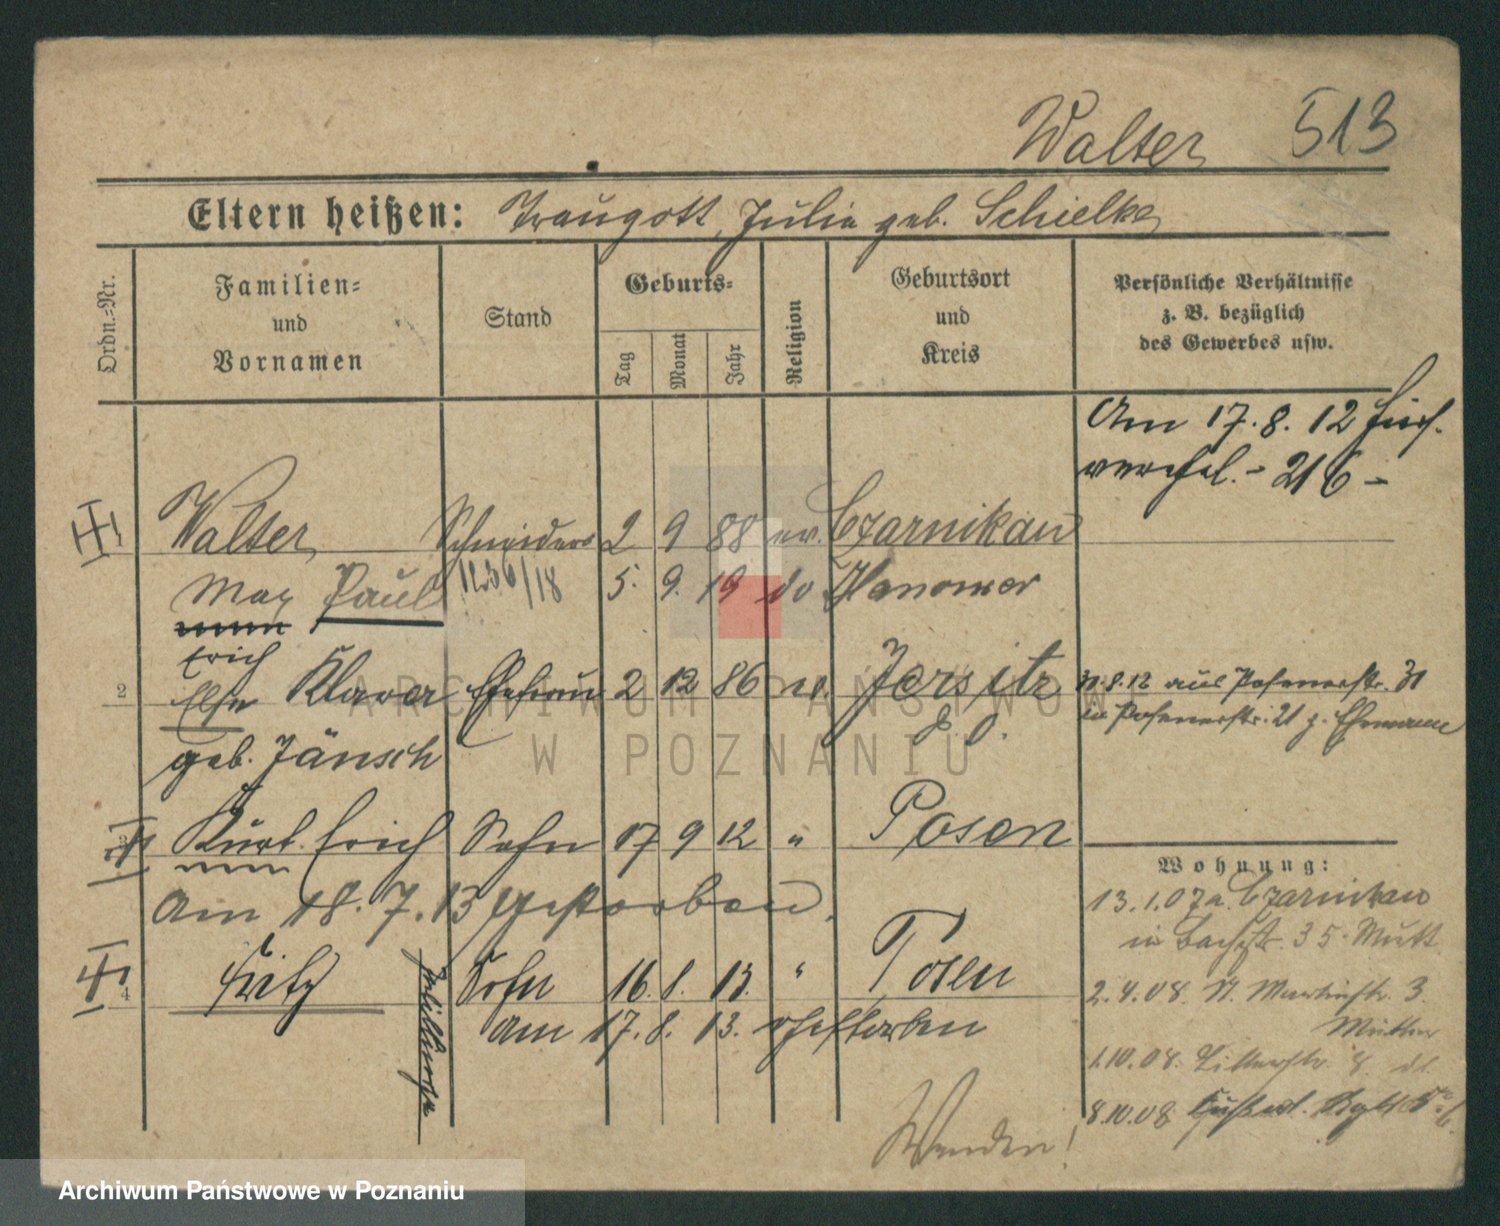 Walter 513
Eltern heißen: Traugott, Julia geb. Schielke
Ordn.=Nr.
Familien=
und
Vornamen
Stand
Geburts=
Tag
Monat
Jahr
Religion
Geburtsort
und
Kreis
Persönliche Verhältnisse
z. B. bezüglich
des Gewerbes usw.
Am 17.8.12
21 6 –
Walter Schneider 2 9 88 ev. Czarnikau
Max Paul 1236/18 5. 9. 19 do
Erich
2 Else Klara Ehefrau 2 12 86 ev. Jersitz 31.8.12 aus Posenerstr. 31
in Posenerstr. 21 z. Ehemann
d. O.
geb. Jänsch
Kurt Erich Sohn 17 9 12 " Posen
Am 18.7.13 gestorben.
4 Fritz Sohn 16. 8. 13. " Posen
am 17.8.13. gestorben
Wohnung:
13.1.07 a. Czarnikau
in Bachstr. 35. Mutt.
2.4.08. St. Martinstr. 3
Mutter
1.10.08. 8
8.10.08
Wenden!
ARCHIWUM PAŃSTWOWE
W POZNANIU
Archiwum Państwowe w Poznaniu